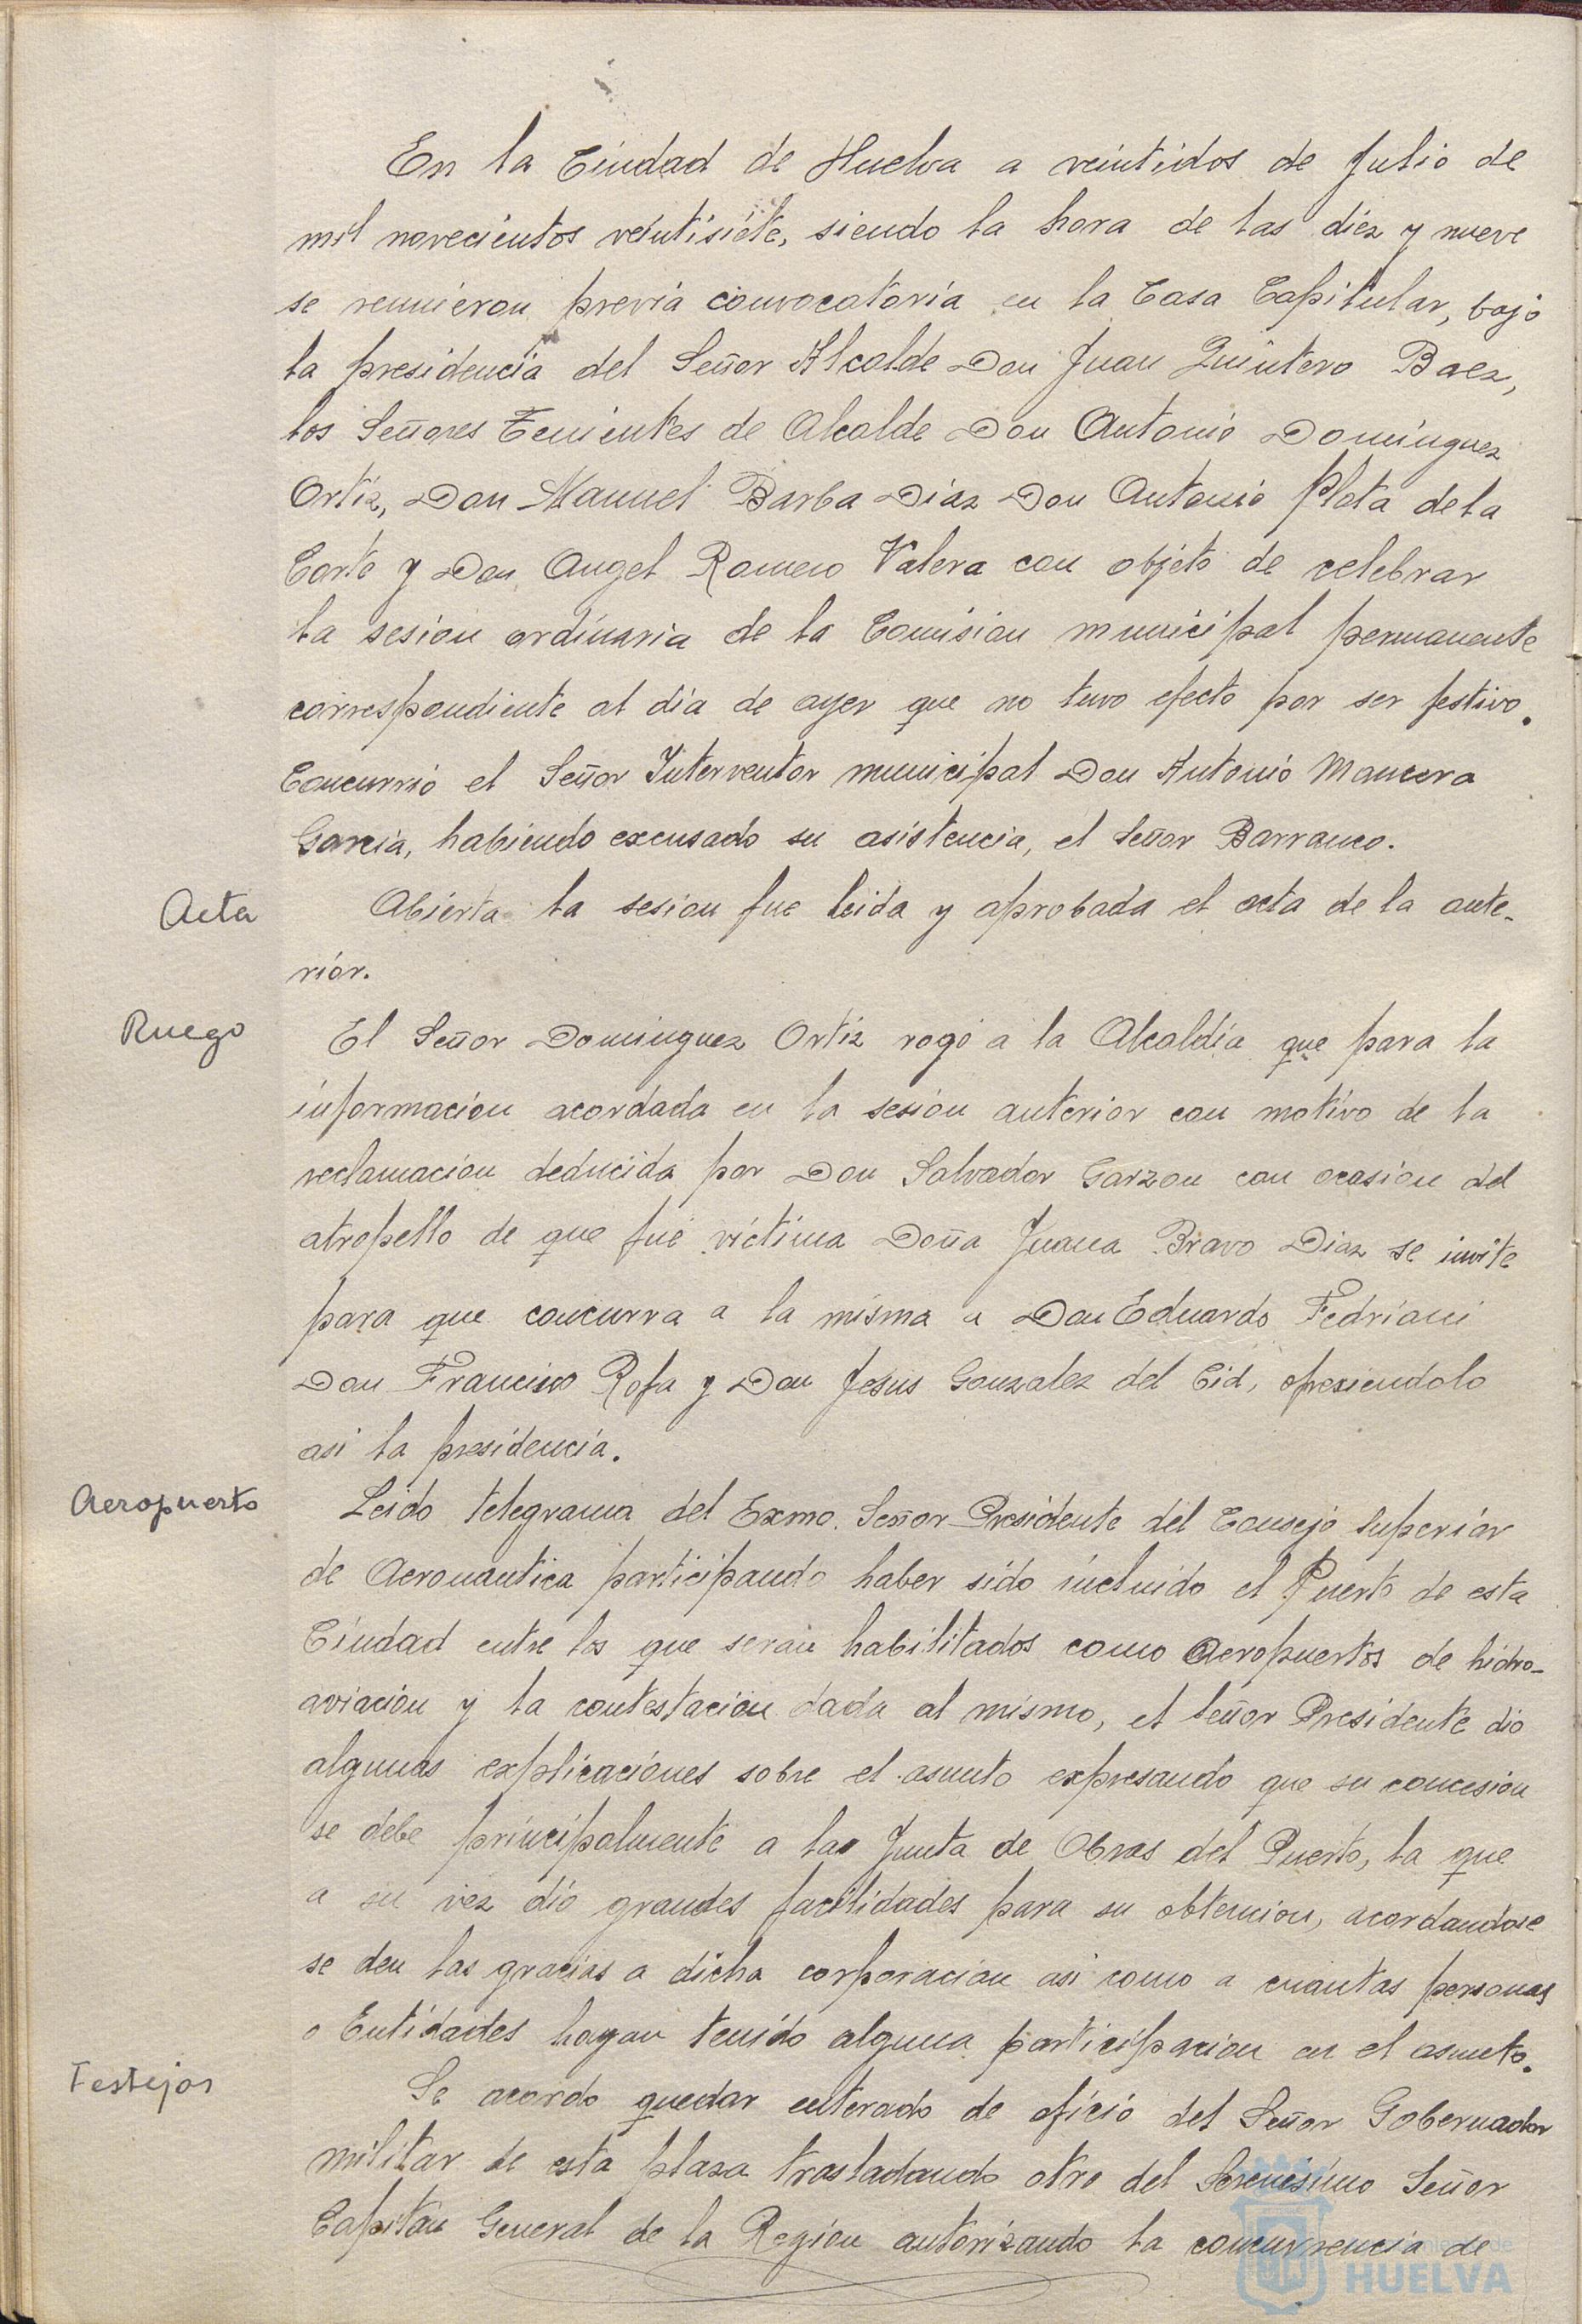 En la Ciudad de Huelva a veintidos de Julio de
mil novecientos veintisiete, siendo la hora de las diez y nueve
se reunieron previa convocatoria en la Casa Capitular, bajo
la presidencia del Señor Alcalde Don Juan Quintero Baez,
los Señores Tenientes de Alcalde Don Antonio Dominguez
Ortiz, Don Manuel Barba Diaz Don Antonio Plata de la
Corte y Don Angel Romero Valera con objeto de celebrar
la sesion ordinaria de la Comision municipal permanente
correspondiente al dia de ayer que no tuvo efecto por ser festivo.
Concurrió el Señor Interventor municipal Don Antonio Mancera
Garcia, habiendo excusado su asistencia, el Señor Barranco.
Acta
Abierta la sesion fue leida y aprobada el acta de la ante-
rior.
Ruego
El Señor Dominguez Ortiz rogó a la Alcaldia que para la
informacion acordada en la sesion anterior con motivo de la
reclamacion deducida por Don Salvador Garzon con ocasion del
atropello de que fué victima Doña Juana Bravo Diaz se invite
para que concurra a la misma a Don Eduardo Fedriani
Don Francisco Rofa y Don Jesus Gonzalez del Cid, ofreciendolo
asi la presidencia.
Aeropuerto
Leido telegrama del Exmo. Señor Presidente del Consejo Superior
de Aeronautica participando haber sido incluido el Puerto de esta
Ciudad entre los que seran habilitados como Aeropuertos de hidro-
aviacion y la contestacion dada al mismo, el Señor Presidente dio
algunas explicaciones sobre el asunto expresando que su concesion
se debe principalmente a la Junta de Obras del Puerto, la que
a su vez dió grandes facilidades para su obtencion, acordandose
se den las gracias a dicha corporacion asi como a cuantas personas
o Entidades hayan tenido alguna participacion en el asunto.
Festejos
Se acordo quedar enterado de oficio del Señor Gobernador
militar de esta plaza trasladando otro del Serenisimo Señor
Capitan General de la Region autorizando la concurrencia de
HUELVA